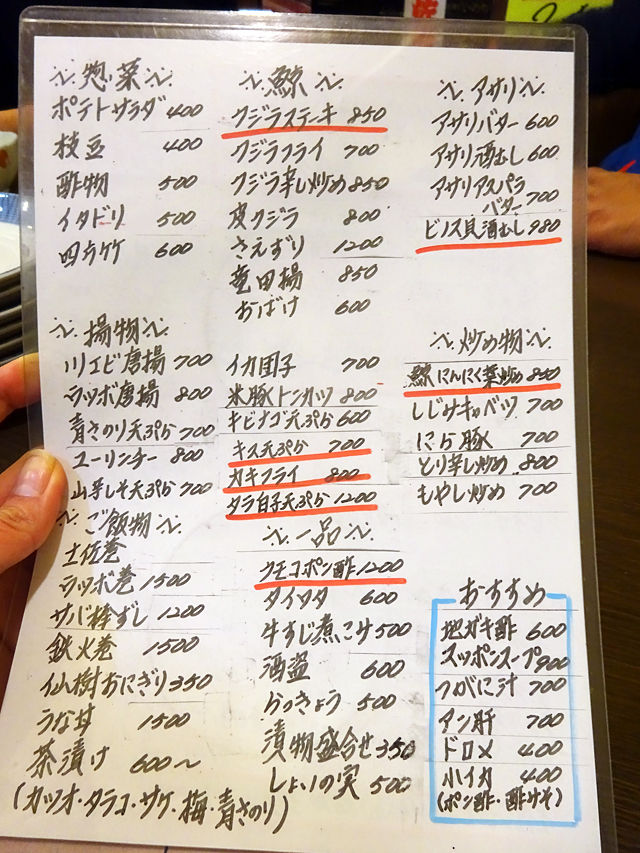 惣菜
ポテトサラダ 400
枝豆 400
酢物 500
イタドリ 500
四方竹 600
鯨
クジラステーキ 850
クジラフライ 700
クジラ辛し炒め 850
皮クジラ 800
さえずり 1200
竜田揚 850
おばけ 600
アサリ
アサリバター 600
アサリ酒むし 600
アサリアスパラ
バター 700
ビノス貝酒むし 980
揚物
川エビ唐揚 700
ウツボ唐揚 800
青さのり天ぷら 700
ユーリンチー 800
山芋しそ天ぷら 700
イカ団子 700
米豚トンカツ 800
キビナゴ天ぷら 600
キス天ぷら 700
カキフライ 800
タラ白子天ぷら 1200
炒め物
鯨にんにく葉炒め 850
しじみキャベツ 700
にら豚 700
とり辛し炒め 800
もやし炒め 700
ご飯物
土佐巻
ウツボ巻 1500
サバ棒ずし 1200
鉄火巻 1500
仙樹おにぎり 350
うな丼 1500
茶漬け 600〜
(カツオ・タラコ・サケ・梅・青さのり)
一品
クモコポン酢 1200
タイワタ 600
牛すじ煮こみ 500
酒盗 600
らっきょう 500
漬物盛合せ 350
しょいの実 500
おすすめ
地ガキ酢 600
スッポンスープ 900
つがに汁 700
アン肝 700
ドロメ 400
小イカ 400
(ポン酢・酢みそ)